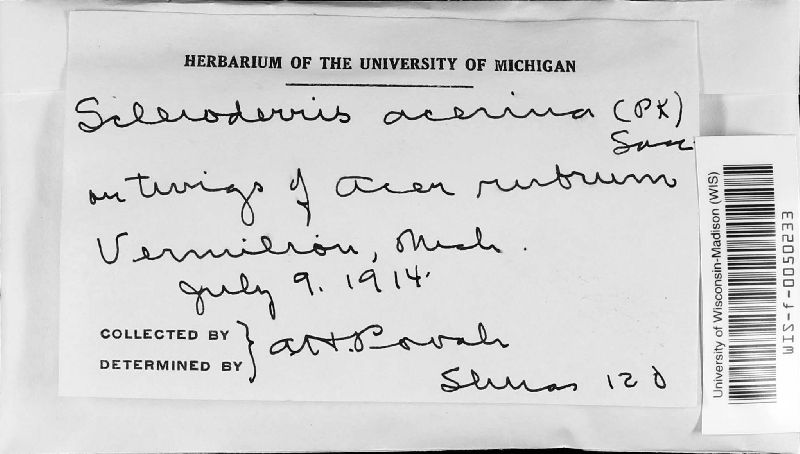 HERBARIUM OF THE UNIVERSITY OF MICHIGAN
Scleroderris acerina (PK)
Sacc
on twigs of Acer rubrum
Vermilion, Mich.
July 9. 1914.
COLLECTED BY
DETERMINED BY
A.H. Povah
120
University of Wisconsin-Madison (WIS)
WIS-f-0050233